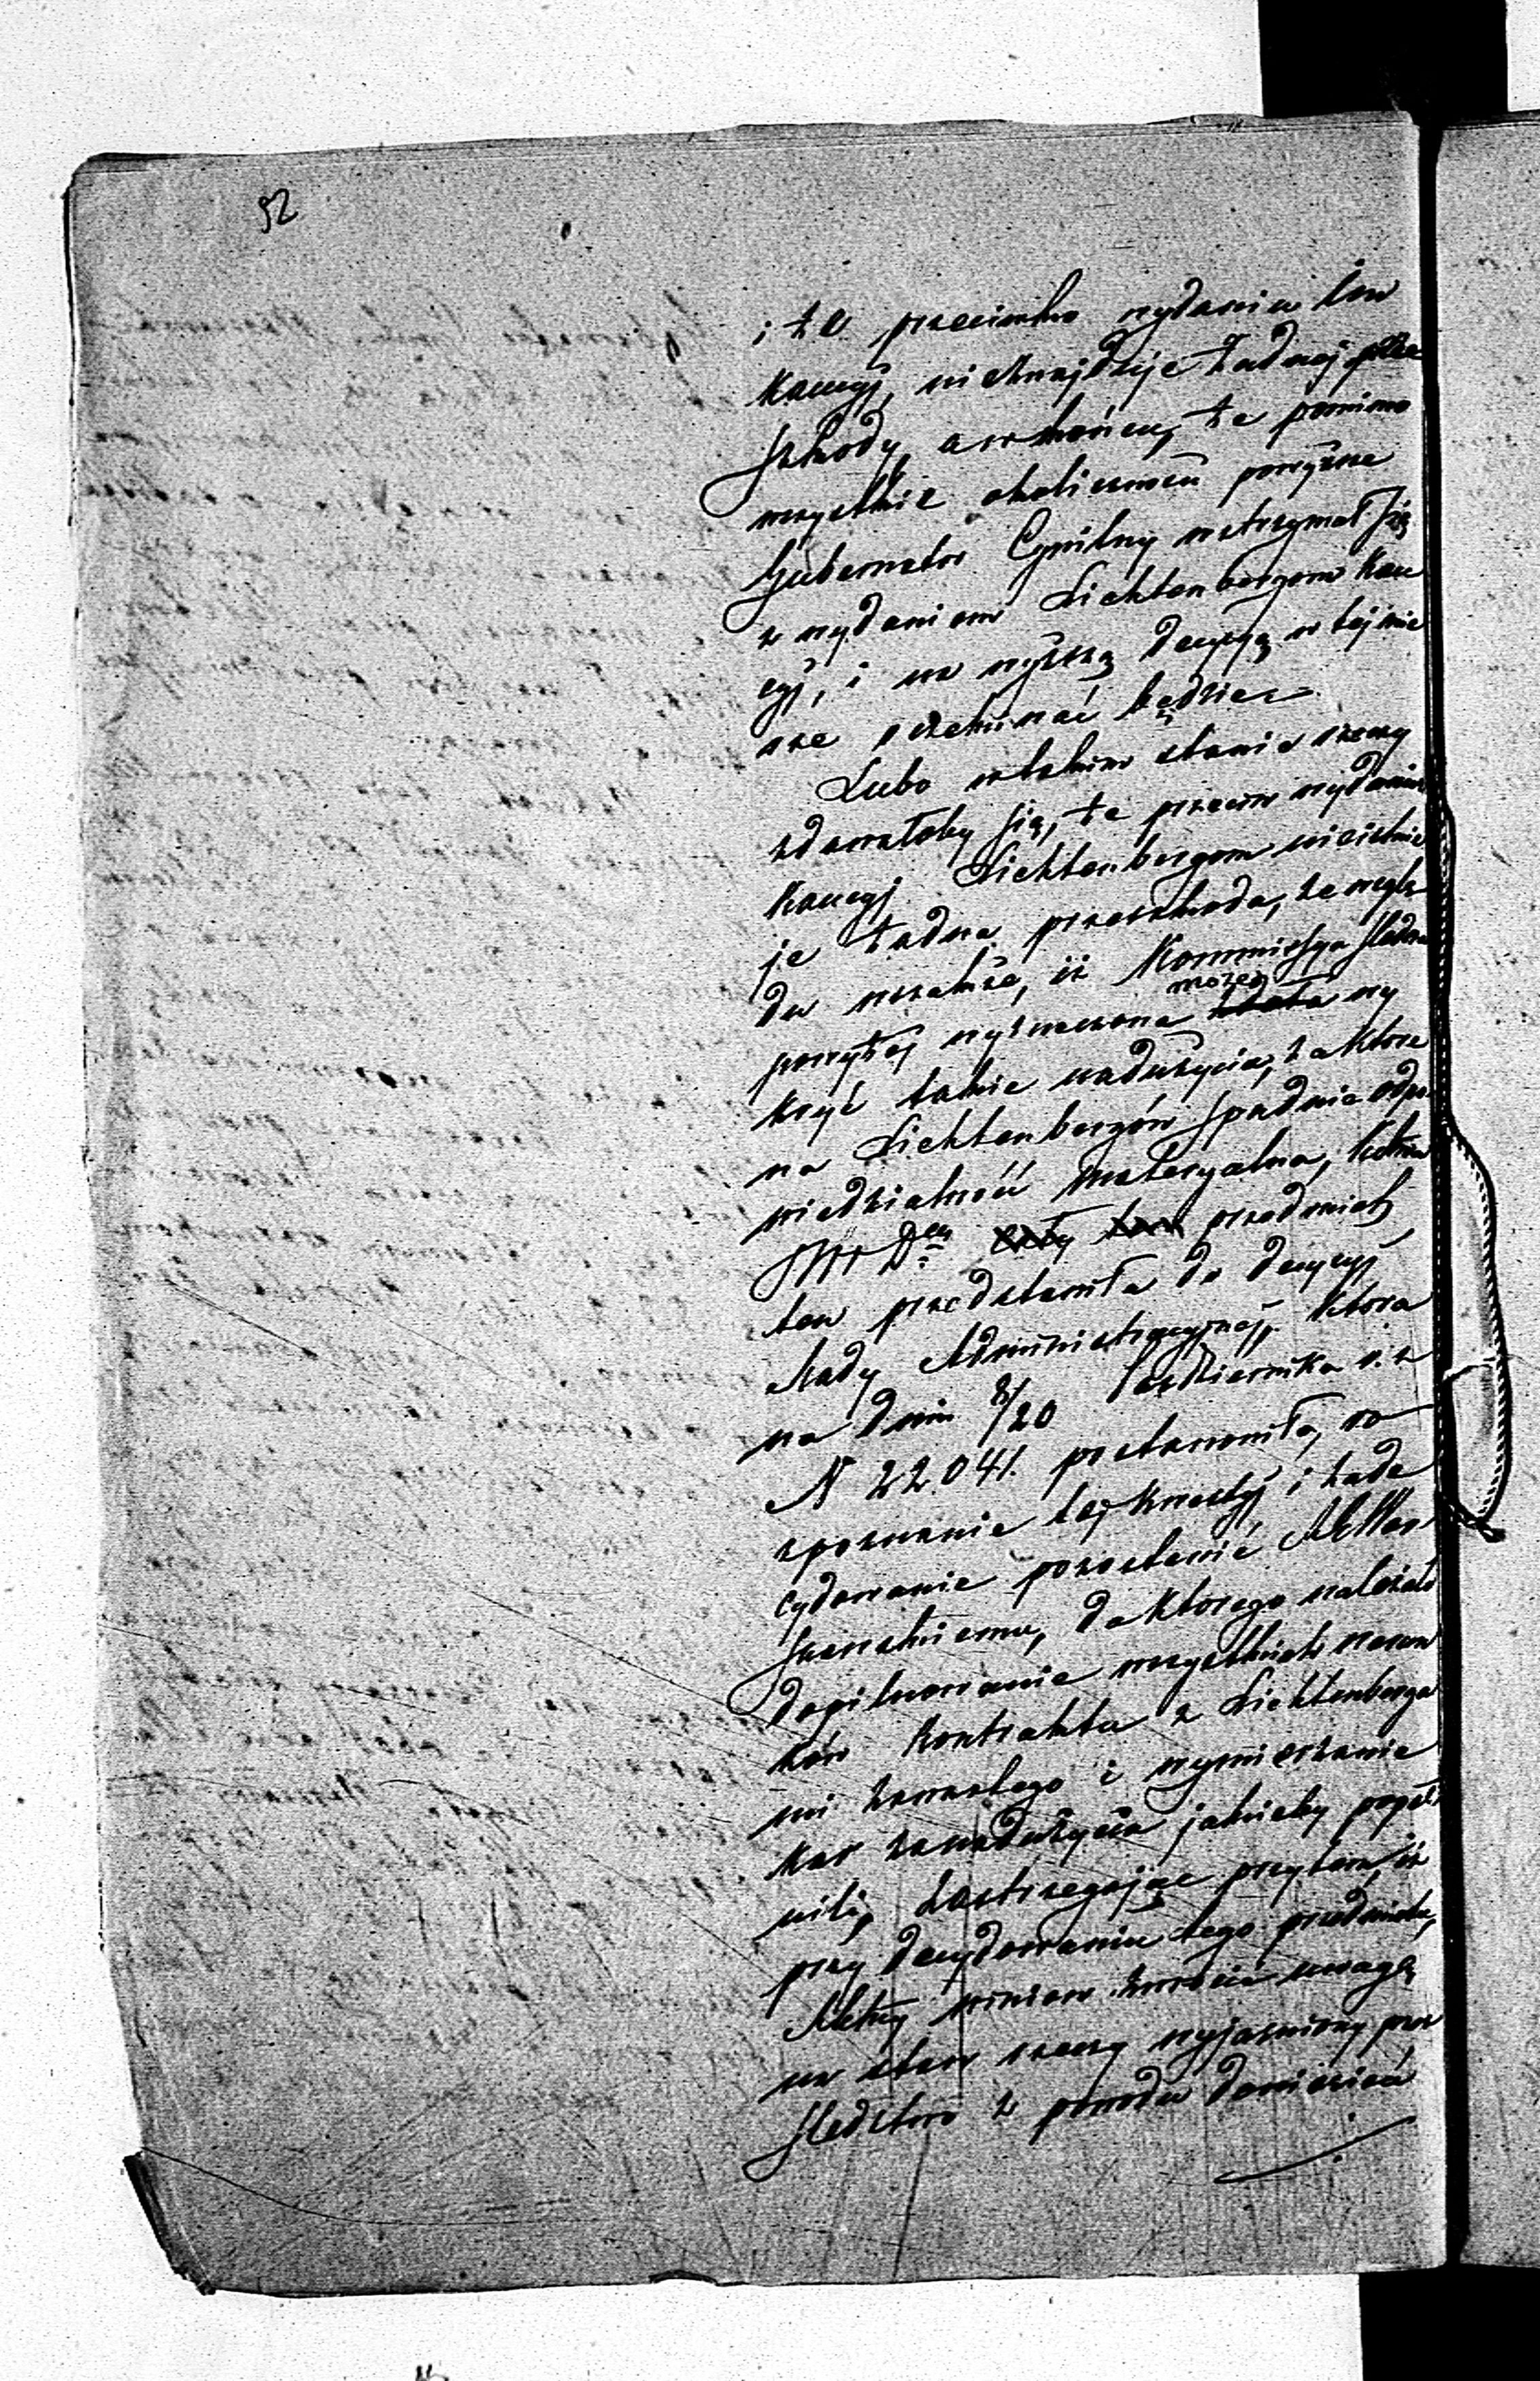 92
i że przeciwko wydaniu tem
kaucyj, nieznajduje żadnej prze
szkody, a w końcu, że pomimo
wszystkie okoliczności powyższe
Gubernator Cywilny wstrzymał się
z wydaniem Lichtenbergom kau
cyj, i na wyższą decyzyą w tej mie
rze oczekiwać będzie
Lubo w takim stanie rzeczy
zdawałoby się, że przeciw wydaniu
kaucyj Lichtenbergom nieistnie
je żadna przeszkoda, ze wzglę
du wszakże, iż Kommissya śledcza
powyżej wyznaczona może wy
kryć takie nadużycia, za które
na Lichtenbergów spadnie odpo
wiedzialność materyalna,
przedmiot
ten przedstawiła do decyzyj
Rady Administracyjnej. która
na dniu 8/20 Października r. z
N 22.041. postanowiła, ro
zpoznanie tej kwestyj i zade
cydowanie pozostawić Mttowi
Skarbu, do którego należało
dopilnowanie wszystkich warun
ków kontraktu z Lichtenberga
mi zawartego i wymierzanie
kar za nadużycia jakieby popeł
nili, zastrzegając przytem, iż
przy decydowaniu tego przedmiotu,
winien zwrócić uwagę
na stan rzeczy wyjaśniony przez
śledztwo z powodu doniesień